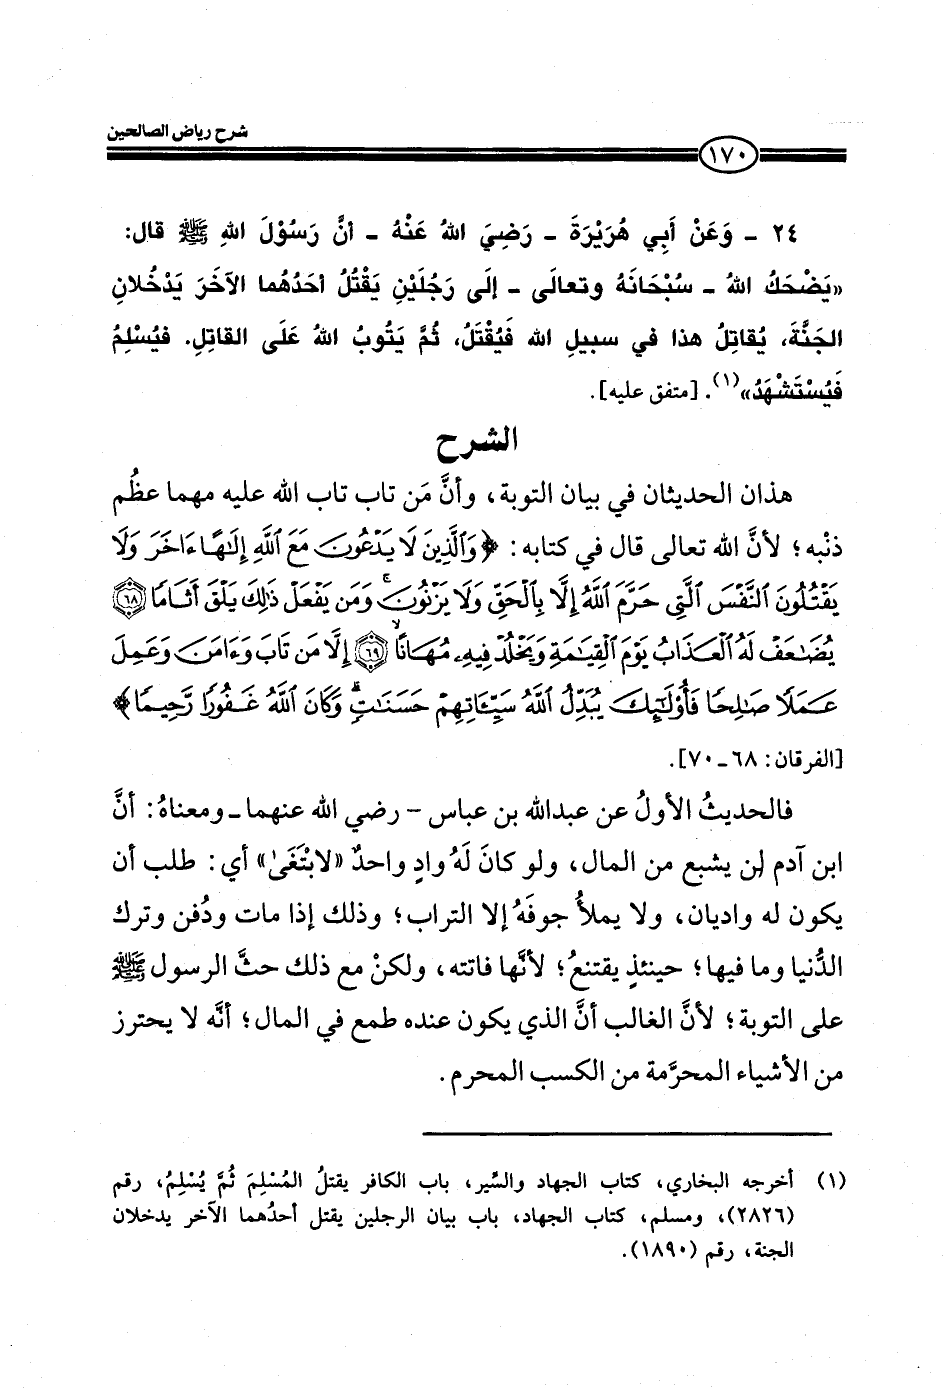 شرح رياض الصالحين
١٧٠
٢٤ ـ وَعَنْ أَبِي هُرَيْرَةَ ـ رَضِيَ اللهُ عَنْهُ ـ أنَّ رَسُوْلَ اللهِ ﷺ قال:
«يَضْحَكُ اللهُ ـ سُبْحَانَهُ وتعالَى ـ إلَى رَجُلَيْنِ يَقْتُلُ أحَدُهُما الآخَرَ يَدْخُلانِ
الجَنَّةَ، يُقاتِلُ هذا في سبيلِ الله فَيُقْتَلُ، ثُمَّ يَتُوبُ اللهُ عَلَى القاتِلِ. فيُسْلِمُ
فَيُسْتَشْهَدُ»(١). [متفق عليه].
الشرح
هذان الحديثان في بيان التوبة، وأنَّ مَن تاب تاب الله عليه مهما عظُم
ذنْبه؛ لأنَّ الله تعالى قال في كتابه: ﴿وَٱلَّذِينَ لَا يَدْعُونَ مَعَ ٱللَّهِ إِلَٰهًا ءَاخَرَ وَلَا
يَقْتُلُونَ ٱلنَّفْسَ ٱلَّتِي حَرَّمَ ٱللَّهُ إِلَّا بِٱلْحَقِّ وَلَا يَزْنُونَ ۚ وَمَن يَفْعَلْ ذَٰلِكَ يَلْقَ أَثَامًا ٦٨
يُضَٰعَفْ لَهُ ٱلْعَذَابُ يَوْمَ ٱلْقِيَٰمَةِ وَيَخْلُدْ فِيهِۦ مُهَانًا ٦٩ إِلَّا مَن تَابَ وَءَامَنَ وَعَمِلَ
عَمَلًا صَٰلِحًا فَأُو۟لَٰٓئِكَ يُبَدِّلُ ٱللَّهُ سَيِّـَٔاتِهِمْ حَسَنَٰتٍ ۗ وَكَانَ ٱللَّهُ غَفُورًا رَّحِيمًا﴾
[الفرقان: ٦٨ـ٧٠].
فالحديثُ الأولُ عن عبدالله بن عباس - رضي الله عنهما ـ ومعناهُ: أنَّ
ابن آدم لن يشبع من المال، ولو كانَ لَهُ وادٍ واحدٌ «لابْتَغَىٰ» أي: طلب أن
يكون له واديان، ولا يملأُ جوفَهُ إلا التراب؛ وذلك إذا مات ودُفن وترك
الدُّنيا وما فيها؛ حينئذٍ يقتنعُ؛ لأنَّها فاتته، ولكنْ مع ذلك حثَّ الرسول ﷺ
على التوبة؛ لأنَّ الغالب أنَّ الذي يكون عنده طمع في المال؛ أنَّه لا يحترز
من الأشياء المحرَّمة من الكسب المحرم.
(١) أخرجه البخاري، كتاب الجهاد والسِّير، باب الكافر يقتلُ المُسْلِمَ ثُمَّ يُسْلِمُ، رقم
(٢٨٢٦)، ومسلم، كتاب الجهاد، باب بيان الرجلين يقتل أحدُهما الآخر يدخلان
الجنة، رقم (١٨٩٠).